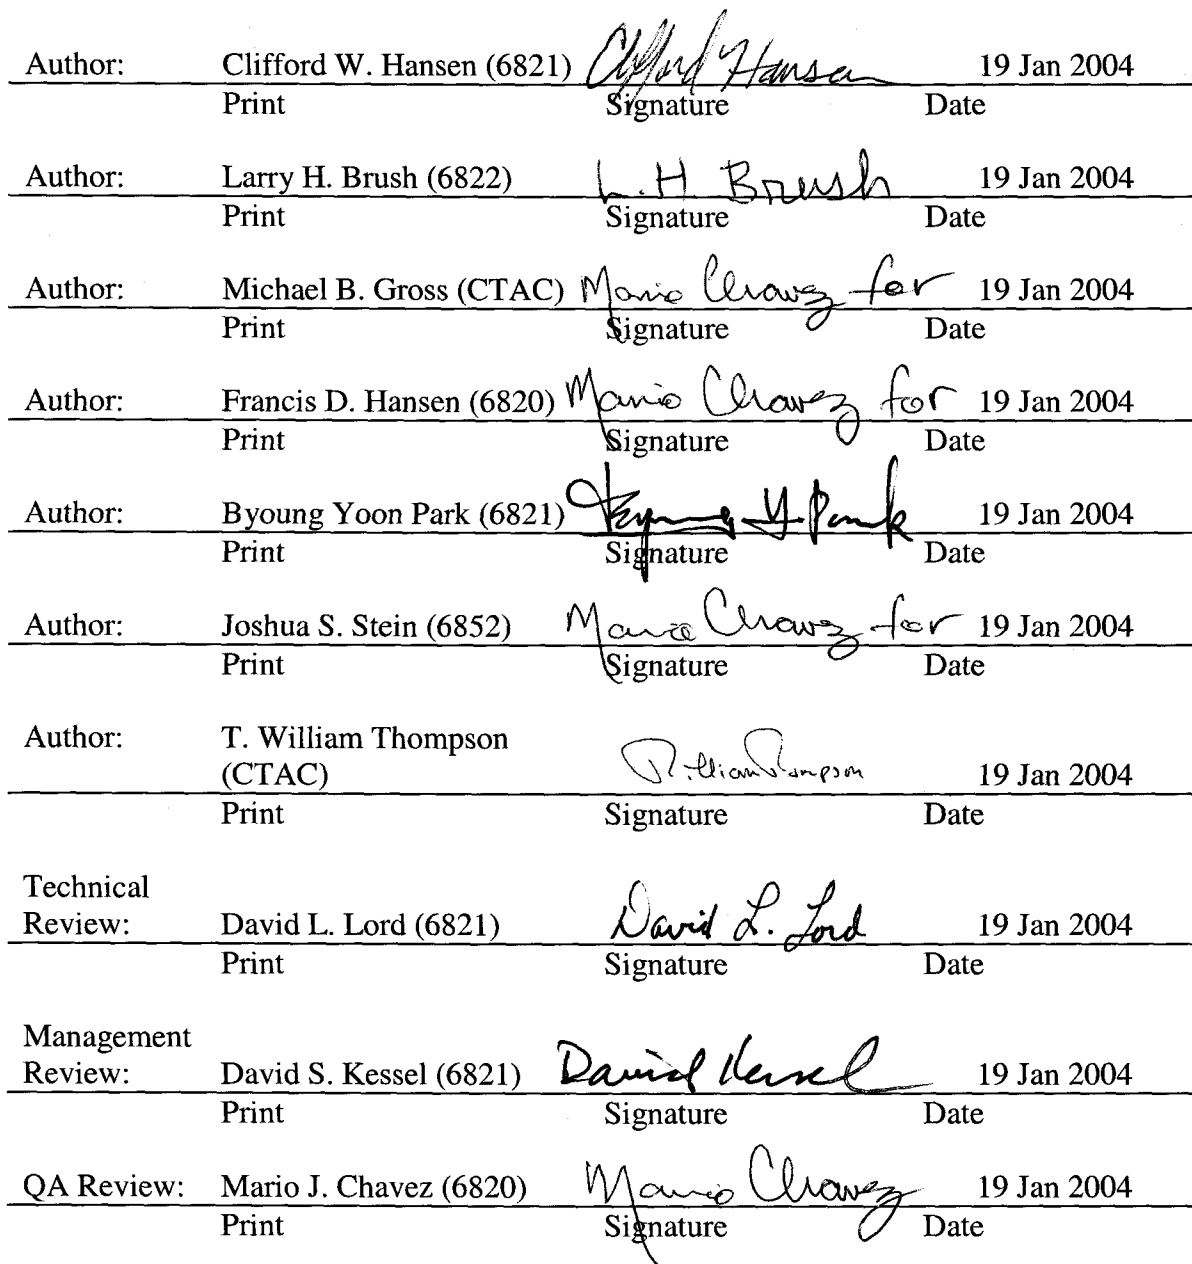 Author: Clifford W. Hansen (6821) Clifford Hansen 19 Jan 2004
Print Signature Date
Author: Larry H. Brush (6822) L. H. Brush 19 Jan 2004
Print Signature Date
Author: Michael B. Gross (CTAC) Mario Chavez for 19 Jan 2004
Print Signature Date
Author: Francis D. Hansen (6820) Mario Chavez for 19 Jan 2004
Print Signature Date
Author: Byoung Yoon Park (6821) Byoung Y. Park 19 Jan 2004
Print Signature Date
Author: Joshua S. Stein (6852) Mario Chavez for 19 Jan 2004
Print Signature Date
Author: T. William Thompson
(CTAC) T. William Thompson 19 Jan 2004
Print Signature Date
Technical
Review: David L. Lord (6821) David L. Lord 19 Jan 2004
Print Signature Date
Management
Review: David S. Kessel (6821) David Kessel 19 Jan 2004
Print Signature Date
QA Review: Mario J. Chavez (6820) Mario Chavez 19 Jan 2004
Print Signature Date